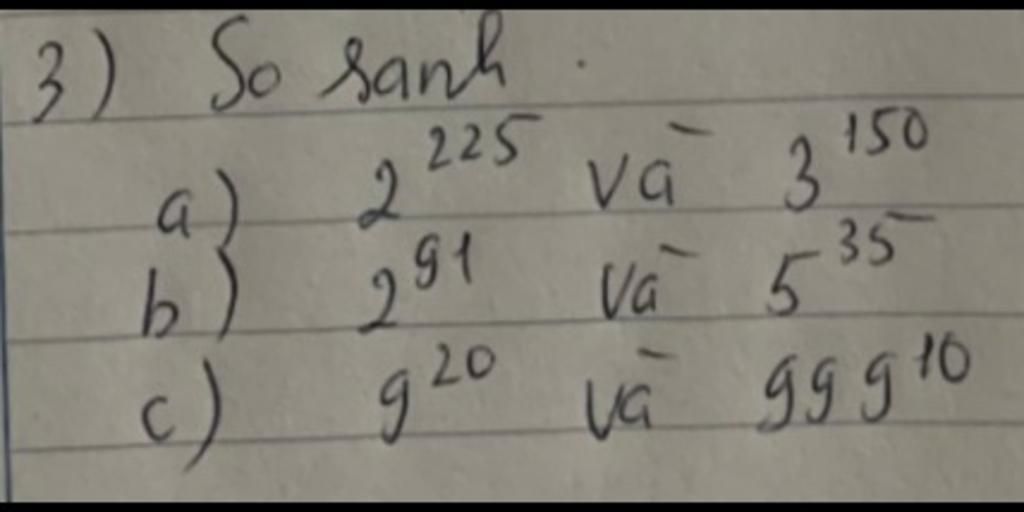 3) So sanh.
a) 2^225 và 3^150
b) 2^91 và 5^35
c) 9^20 và 999^10